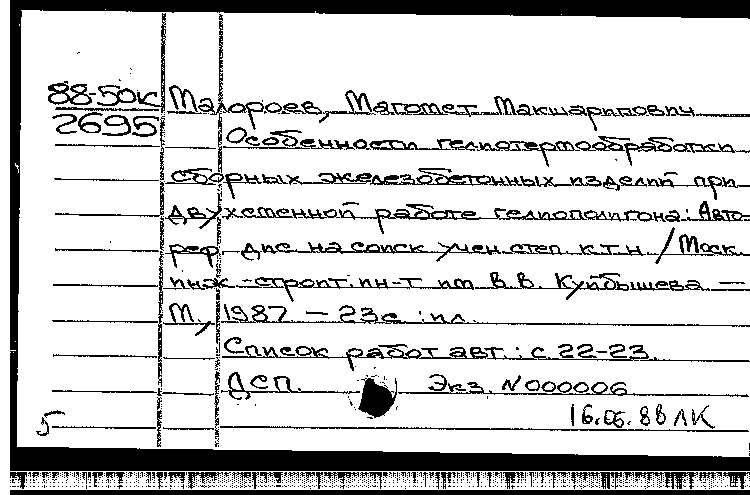 88-50к Малороев, Магомет Макшарипович
2695 Особенности гелиотермообработки
сборных железобетонных изделий при
двухсменной работе гелиополигона: Авто-
реф. дис на соиск учен. степ. к.т.н. / Моск.
инж.-строит. ин-т им В.В. Куйбышева. —
М., 1987 — 23с : ил.
Список работ авт.: с 22-23.
ДСП. Экз. N000006
16.06.88 ЛК
5